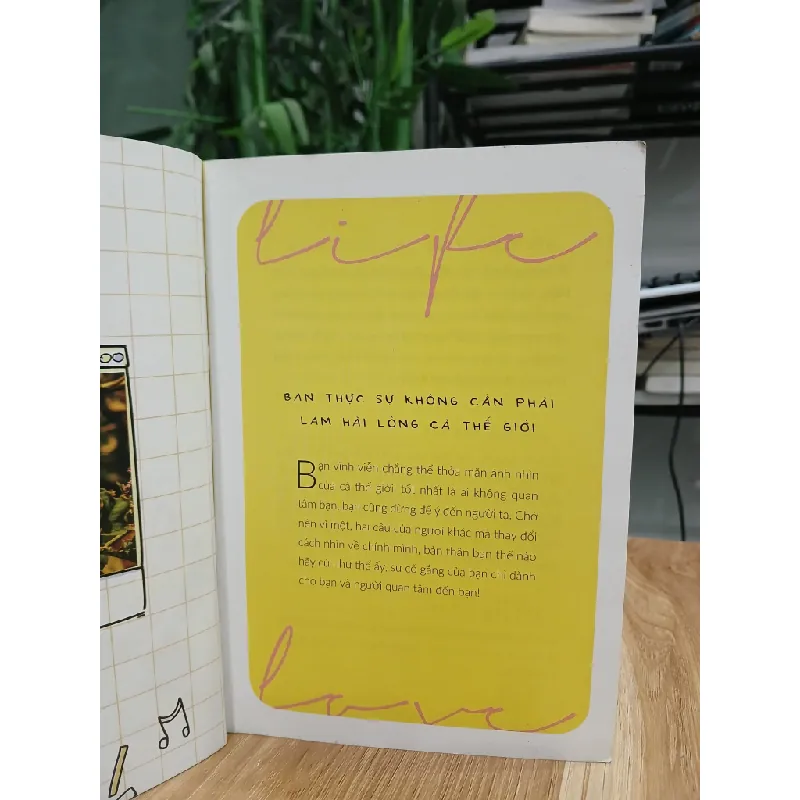 life
BẠN THỰC SỰ KHÔNG CẦN PHẢI
LÀM HÀI LÒNG CẢ THẾ GIỚI
Bạn vĩnh viễn chẳng thể thỏa mãn ánh nhìn
của cả thế giới, tốt nhất là ai không quan
tâm bạn, bạn cũng đừng để ý đến người ta. Chớ
nên vì một, hai câu của người khác mà thay đổi
cách nhìn về chính mình, bản thân bạn thế nào
hãy cứ như thế ấy, sự cố gắng của bạn chỉ dành
cho bạn và người quan tâm đến bạn!
love